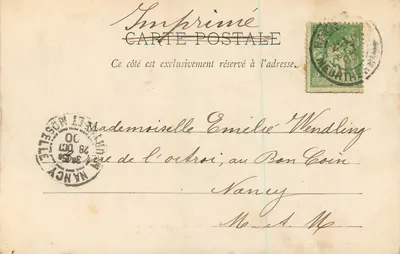 Imprimé
CARTE POSTALE
Ce côté est exclusivement réservé à l'adresse.
Mademoiselle Emélié Wendling
rue de l'octroi, au Bon Coin
Nancy
M-et-M
NANCY
MEURTHE ET MOSELLE
29
OCT
00